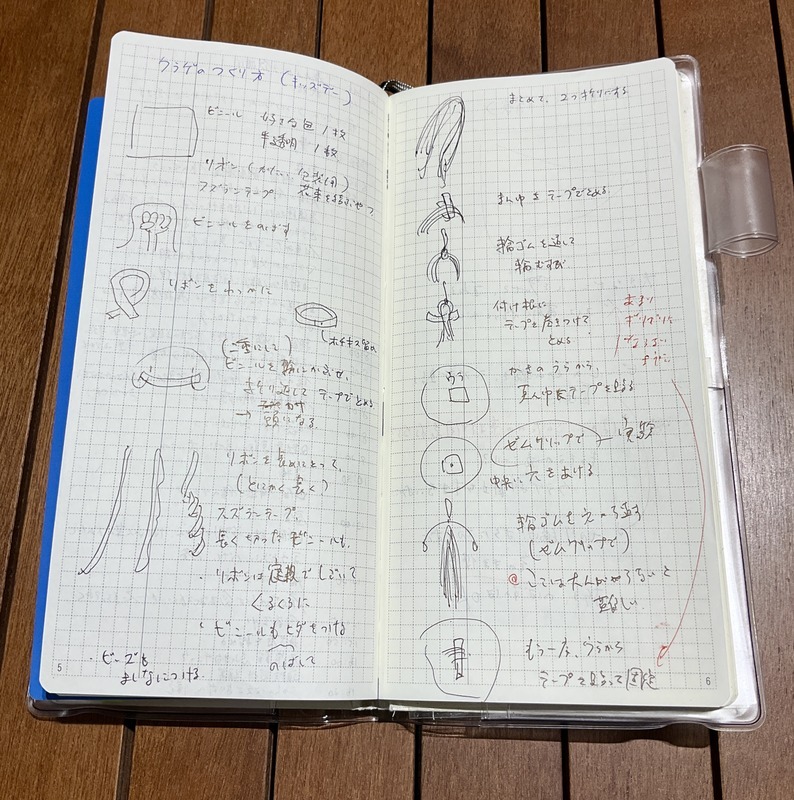 クラゲのつくり方 (キッズデー)
ビニール もらった包 1枚
半透明 1枚
リボン (かたい 包装用)
スズランテープ 花束を結ぶやつ
ビニールをのばす
リボンをわっかに
ホチキス留め
(二重にして)
ビニールを輪にかぶせ、
折り返して テープでとめる
→ 頭になる
リボンを長めにとって、
(とにかく長く)
スズランテープ、
長く切ったビニールも。
・リボンは定規でしごいて
くるくるに
・ビニールもヒダをつける
のばして
・ビーズも
まじないにつける
5
まとめて、2つ折りにする
まん中をテープでとめる
輪ゴムを通して
輪むすび
付け根に
テープをまきつけて
とめる
あまり
ギリギリに
ならない
ように
うら
かさのうらから、
真ん中にテープを貼る
ゼムクリップで
実験
中央に穴をあける
輪ゴムを穴へ通す
(ゼムクリップで)
@ ここは大人がやらないと
難しい
もう一度、うらから
テープを貼って固定
6